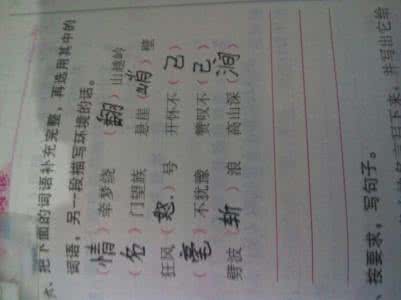 、把下面的词语补充完整，再选用其中的
词语，另一段描写环境的话。
（情）牵梦绕 （翻）山越岭
（名）门望族 悬崖（峭）壁
狂风（怒）号 开怀不（已）
（毫）不犹豫 赞叹不（已）
劈波（斩）浪 高山深（涧）
、按要求，写句子。
写下来，并写出它给